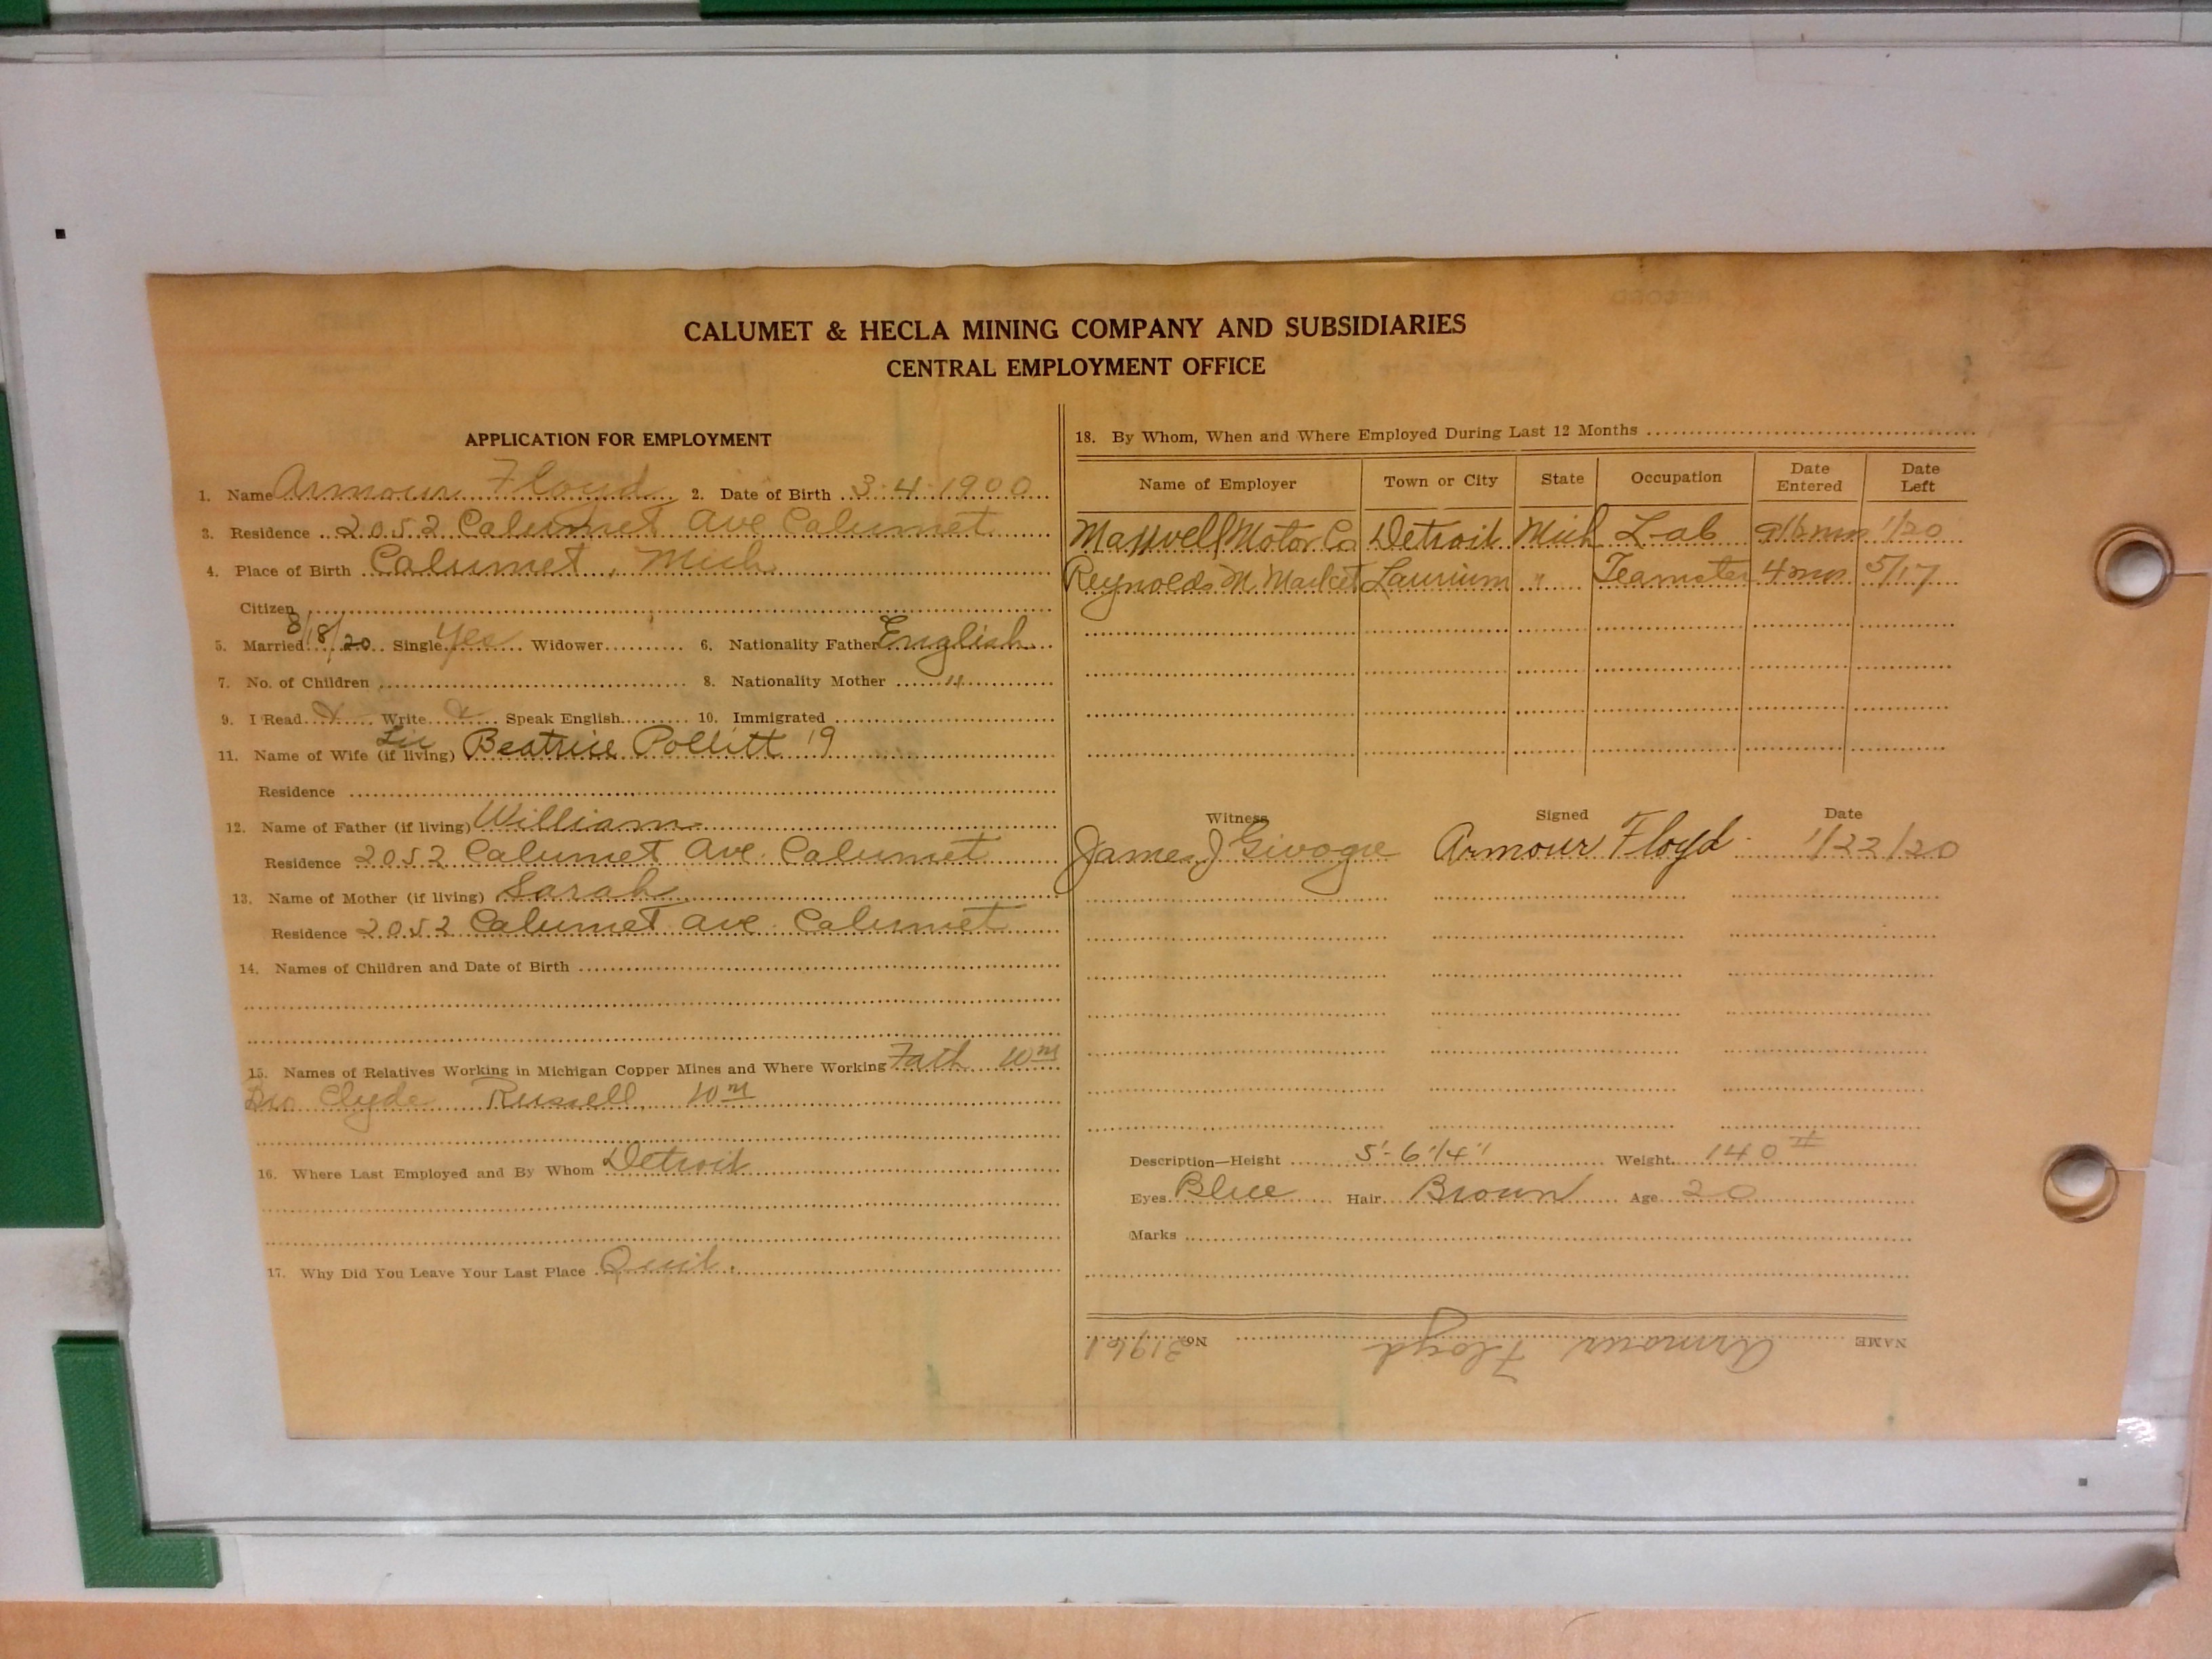 CALUMET & HECLA MINING COMPANY AND SUBSIDIARIES
CENTRAL EMPLOYMENT OFFICE
APPLICATION FOR EMPLOYMENT
1. Name Armour Floyd 2. Date of Birth 3-4-1900
3. Residence 2052 Calumet Ave Calumet
4. Place of Birth Calumet, Mich
Citizen
5. Married 8/18/20 Single Yes Widower 6. Nationality Father English
7. No. of Children 8. Nationality Mother "
9. I Read X Write X Speak English 10. Immigrated
Lic
11. Name of Wife (if living) Beatrice Pollitt 19
Residence
12. Name of Father (if living) William
Residence 2052 Calumet Ave. Calumet
13. Name of Mother (if living) Sarah
Residence 2052 Calumet Ave. Calumet
14. Names of Children and Date of Birth
15. Names of Relatives Working in Michigan Copper Mines and Where Working Fath Wm
Bro Clyde Russell Wm
16. Where Last Employed and By Whom Detroit
17. Why Did You Leave Your Last Place Quit.
18. By Whom, When and Where Employed During Last 12 Months
Name of Employer Town or City State Occupation Date Entered Date Left
Maxwell Motor Co Detroit Mich Lab mos 1/20
Reynolds M. Market Laurium " Teamster 4 mos 5/17
Witness Signed Date
James J Armour Floyd 1/22/20
Description—Height 5'-6 1/4" Weight 140#
Eyes Blue Hair Brown Age 20
Marks
NAME Armour Floyd No. 31961